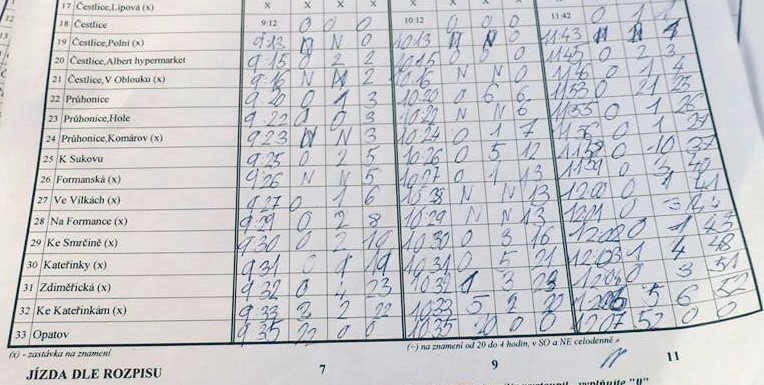 17 Čestlice,Lipová (x) X X X X X X X X X X X X
18 Čestlice 9:12 0 0 0 10:12 0 0 0 11:42 0 1 1
19 Čestlice,Polní (x) 9.13 N N 0 10.13 N N 0 11.43 N N 1
20 Čestlice,Albert hypermarket 9.15 0 2 2 10.15 0 0 0 11.45 0 2 3
21 Čestlice,V Oblouku (x) 9.16 N N 2 10.16 N N 0 11.46 0 1 4
22 Průhonice 9.20 0 1 3 10.20 0 6 6 11.53 0 21 25
23 Průhonice,Hole 9.22 0 0 3 10.22 N N 6 11.55 0 1 26
24 Průhonice,Komárov (x) 9.23 N N 3 10.24 0 1 7 11.56 0 1 27
25 K Sukovu 9.25 0 2 5 10.26 0 5 12 11.58 0 10 37
26 Formanská (x) 9.26 N N 5 10.27 0 1 13 11.59 0 3 40
27 Ve Vilkách (x) 9.27 0 1 6 10.28 N N 13 12.00 0 1 41
28 Na Formance (x) 9.29 0 2 8 10.29 N N 13 0 3
29 Ke Smrčině (x) 9.30 0 2 10 10.30 0 3 16 0 1 45
30 Kateřinky (x) 9.31 0 9 19 10.31 0 5 21 12.03 1 4 48
31 Zdiměřická (x) 9.32 0 4 23 10.32 1 3 23 12.04 0 3 51
32 Ke Kateřinkám (x) 9.33 3 2 22 10.33 5 2 20 5 6 52
33 Opatov 9.35 22 0 0 10.35 20 0 0 12.07 52 0 0
(x) - zastávka na znamení
(~) na znamení od 20 do 4 hodin, v SO a NE celodenně
JÍZDA DLE ROZPISU 7 9 11
vyplňujte "0"